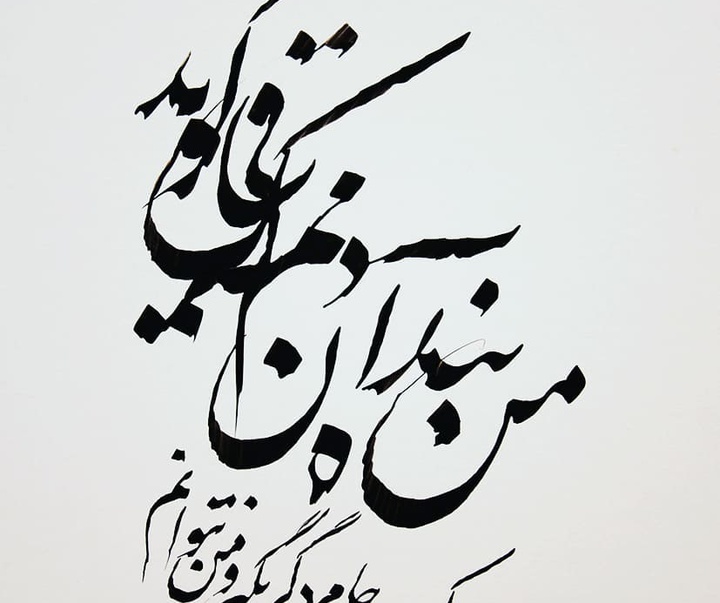 من بنده آن دمم که ساقی گوید
یک جام دگر بگیر و من نتوانم